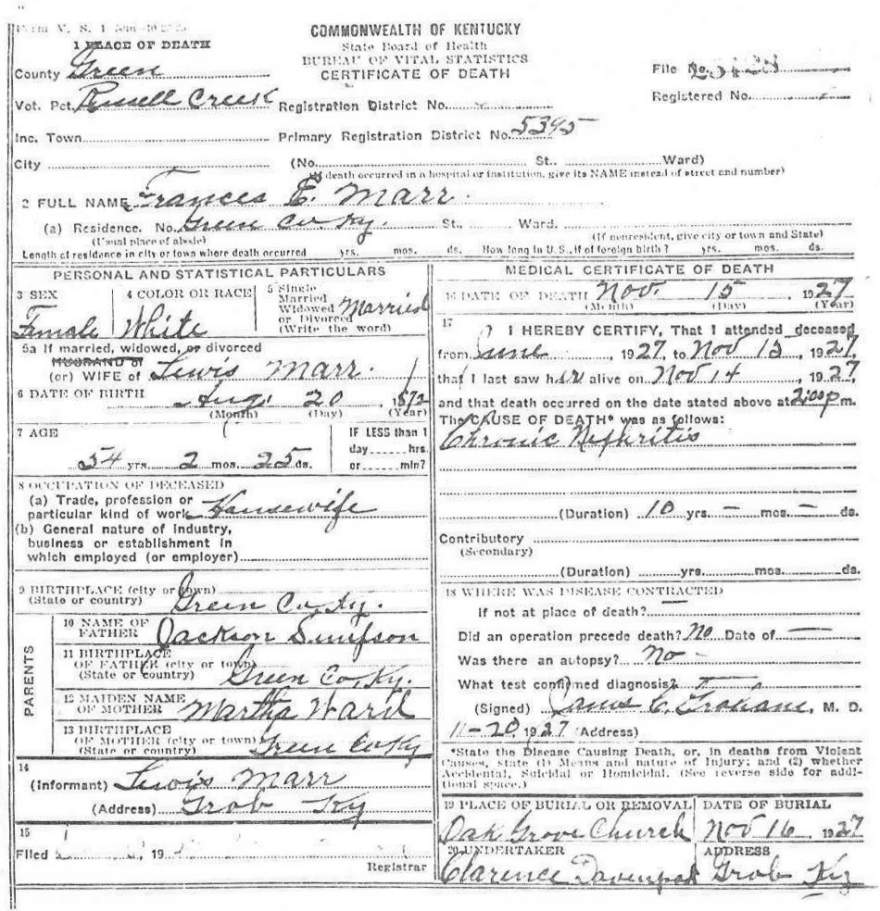 COMMONWEALTH OF KENTUCKY
State Board of Health
BUREAU OF VITAL STATISTICS
CERTIFICATE OF DEATH
1 PLACE OF DEATH
County Green
Vot. Pct. Russell Creek
Registration District No.
File No.
Registered No.
Inc. Town
Primary Registration District No. 5395
City (No. St. Ward)
(If death occurred in a hospital or institution, give its NAME instead of street and number)
2 FULL NAME Frances E. Marr.
(a) Residence. No. Green Co. Ky. St., Ward.
(Usual place of abode) (If nonresident, give city or town and State)
Length of residence in city or town where death occurred yrs. mos. ds. How long in U. S., if of foreign birth? yrs. mos. ds.
PERSONAL AND STATISTICAL PARTICULARS
3 SEX
Female
4 COLOR OR RACE
White
5 Single
Married
Widowed
or Divorced
(Write the word)
Married
5a If married, widowed, or divorced
HUSBAND of
(or) WIFE of Lewis Marr.
6 DATE OF BIRTH Aug. 20
(Month) (Day) (Year)
7 AGE
54 yrs. 2 mos. 25 ds.
IF LESS than 1
day hrs.
or min?
8 OCCUPATION OF DECEASED
(a) Trade, profession or
particular kind of work Housewife
(b) General nature of Industry,
business or establishment in
which employed (or employer)
9 BIRTHPLACE (city or town)
(State or country) Green Co. Ky.
PARENTS
10 NAME OF
FATHER Jackson Simpson
11 BIRTHPLACE
OF FATHER (city or town)
(State or country) Green Co. Ky.
12 MAIDEN NAME
OF MOTHER Martha Ward
13 BIRTHPLACE
OF MOTHER (city or town)
(State or country) Green Co Ky
14
(Informant) Lewis Marr
(Address) Grob Ky
15
Filed , 19
Registrar
MEDICAL CERTIFICATE OF DEATH
16 DATE OF DEATH Nov. 15 1927
(Month) (Day) (Year)
17
I HEREBY CERTIFY, That I attended deceased
from June , 1927, to Nov 15, 1927,
that I last saw her alive on Nov 14 1927,
and that death occurred on the date stated above at 2:00 p m.
The CAUSE OF DEATH* was as follows:
Chronic Nephritis
(Duration) 10 yrs. – mos. – ds.
Contributory
(Secondary)
(Duration) yrs. mos. ds.
18 WHERE WAS DISEASE CONTRACTED
If not at place of death? —
Did an operation precede death? No Date of —
Was there an autopsy? No –
What test confirmed diagnosis?
(Signed) James C. , M. D.
11-20, 1927 (Address)
*State the Disease Causing Death, or, in deaths from Violent
Causes, state (1) Means and nature of Injury; and (2) whether
Accidental, Suicidal or Homicidal. (See reverse side for addi-
tional space.)
19 PLACE OF BURIAL OR REMOVAL
Oak Grove Church
DATE OF BURIAL
Nov 16 1927
20 UNDERTAKER
Clarence Davenport
ADDRESS
Grob Ky